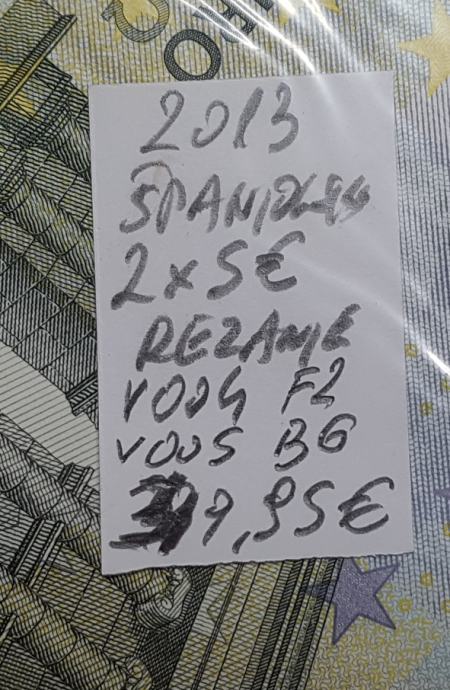 2013
ŠPANIJA
2x5€
REZANJE
V004 F2
V005 B6
9,95€